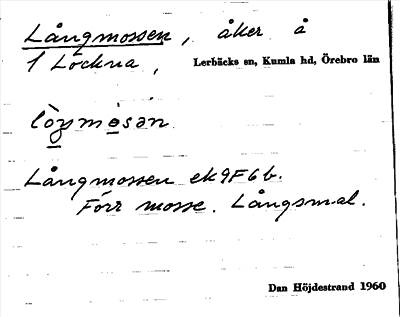 Långmossen, åker å
1 Lockna, Lerbäcks sn, Kumla hd, Örebro län
Långmossen ek 9F6b.
Förr mosse. Långsmal.
Dan Höjdestrand 1960